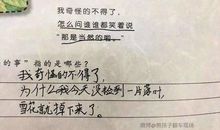 我奇怪的不得了，
怎么问谁谁都笑着说
“那是当然的啦。”
的事”指的是哪些？
我奇怪的不得了，
为什么我今天没捡到一片落叶，
雪花就掉下来了。
微博@熊孩子翻车现场